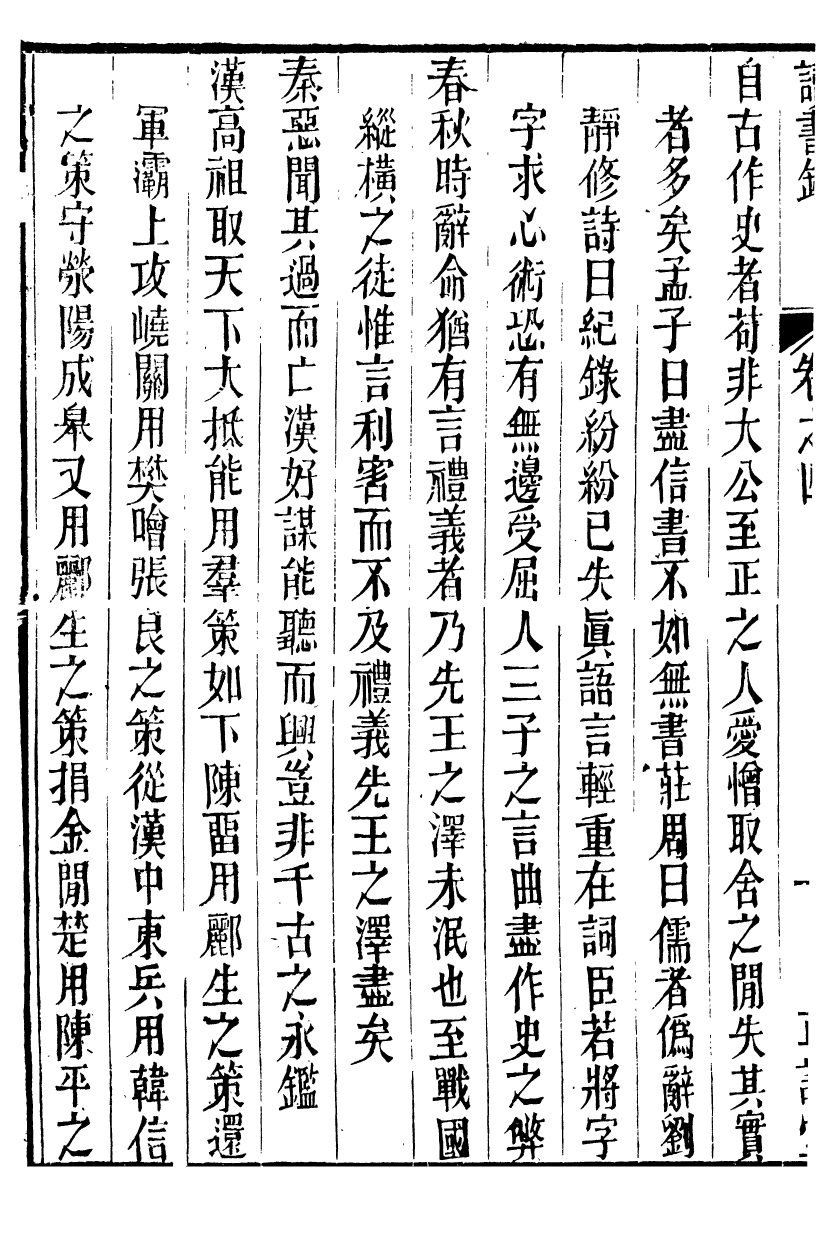 讀書錄 卷之四
自古作史者苟非大公至正之人愛憎取舍之閒失其實
者多矣孟子曰盡信書不如無書莊周曰儒者僞辭劉
靜修詩曰紀錄紛紛已失眞語言輕重在詞臣若將字
字求心術恐有無邊受屈人三子之言曲盡作史之弊
春秋時辭命猶有言禮義者乃先王之澤未泯也至戰國
縱橫之徒惟言利害而不及禮義先王之澤盡矣
秦惡聞其過而亡漢好謀能聽而興豈非千古之永鑑
漢高祖取天下大抵能用羣策如下陳畱用酈生之策還
軍灞上攻嶢關用樊噲張良之策從漢中東兵用韓信
之策守滎陽成皋又用酈生之策捐金閒楚用陳平之